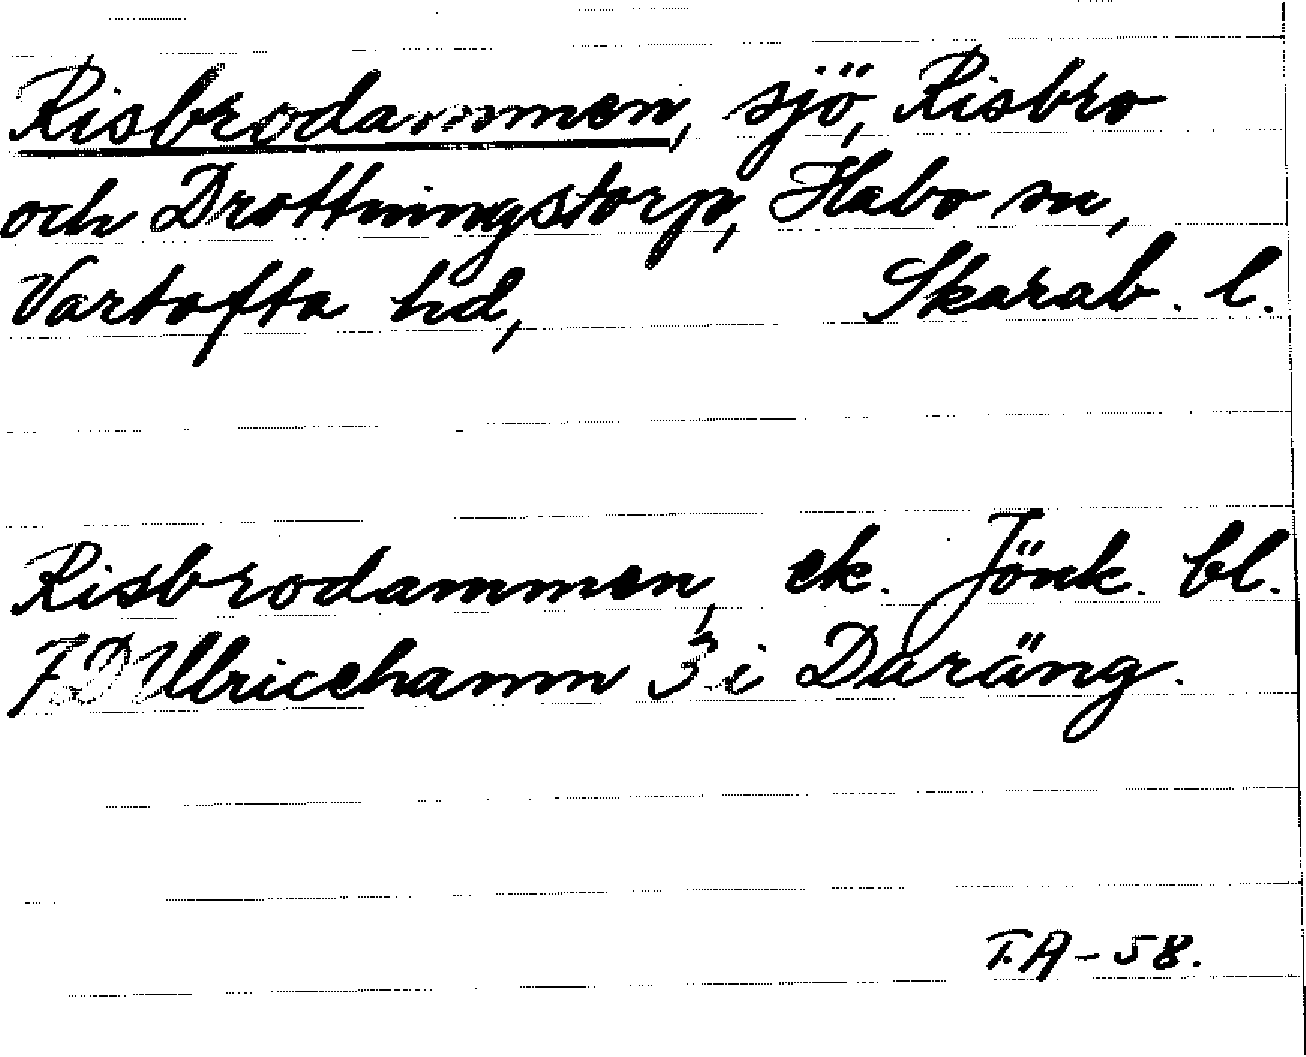 Risbrodammen, sjö, Risbro
och Drottningstorp, Habo sn,
Vartofta hd, Skarab. l.
Risbrodammen, ek. Jönk. bl.
7D Ulricehamn 3 i Daräng.
T.A-58.